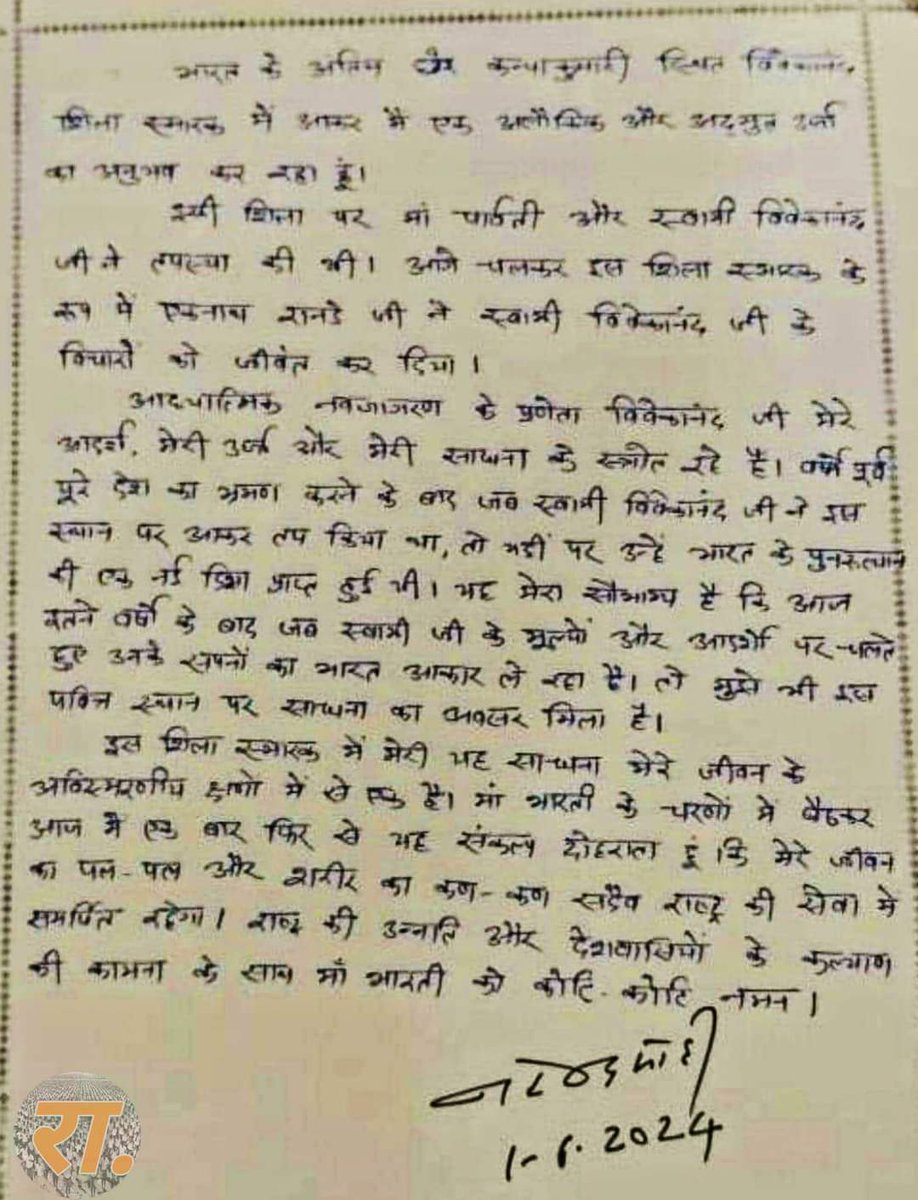 भारत के अंतिम छोर कन्याकुमारी स्थित विवेकानंद
शिला स्मारक में आकर मैं एक अलौकिक और अद्भुत उर्जा
का अनुभव कर रहा हूं।
इसी शिला पर मां पार्वती और स्वामी विवेकानंद
जी ने तपस्या की थी। आगे चलकर इस शिला स्मारक के
रूप में एकनाथ रानडे जी ने स्वामी विवेकानंद जी के
विचारों को जीवंत कर दिया।
आध्यात्मिक नवजागरण के प्रणेता विवेकानंद जी मेरे
आदर्श, मेरी उर्जा और मेरी साधना के स्त्रोत रहे है। वर्षों पूर्व
पूरे देश का भ्रमण करने के बाद जब स्वामी विवेकानंद जी ने इस
स्थान पर आकर तप किया था, तो यहीं पर उन्हें भारत के पुनरूत्थान
की एक नई दिशा प्राप्त हुई थी। यह मेरा सौभाग्य है कि आज
इतने वर्षों के बाद जब स्वामी जी के मूल्यों और आदर्शों पर चलते
हुए उनके सपनों का भारत आकार ले रहा है। तो मुझे भी इस
पवित्र स्थान पर साधना का अवसर मिला है।
इस शिला स्मारक में मेरी यह साधना मेरे जीवन के
अविस्मरणीय क्षणों में से एक है। मां भारती के चरणों मे बैठकर
आज मे एक बार फिर से यह संकल्प दोहराता हूं कि मेरे जीवन
का पल-पल और शरीर का कण-कण सदैव राष्ट्र की सेवा मे
समर्पित रहेगा। राष्ट्र की उन्नति और देशवासियों के कल्याण
की कामना के साथ माँ भारती को कोटि-कोटि नमन।
नरेन्द्र मोदी
1-6.2024
रा.